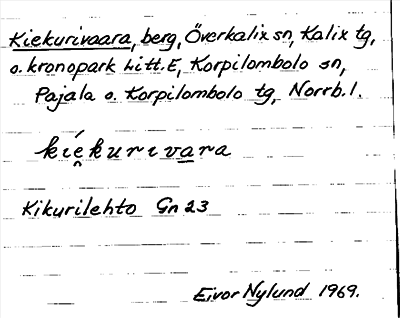 Kiekurivaara, berg, Överkalix sn, Kalix tg,
o. kronopark Litt. E, Korpilombolo sn,
Pajala o. Korpilombolo tg, Norrb. l.
kíe̯kurivara
Kikurilehto Gn 23
Eivor Nylund 1969.